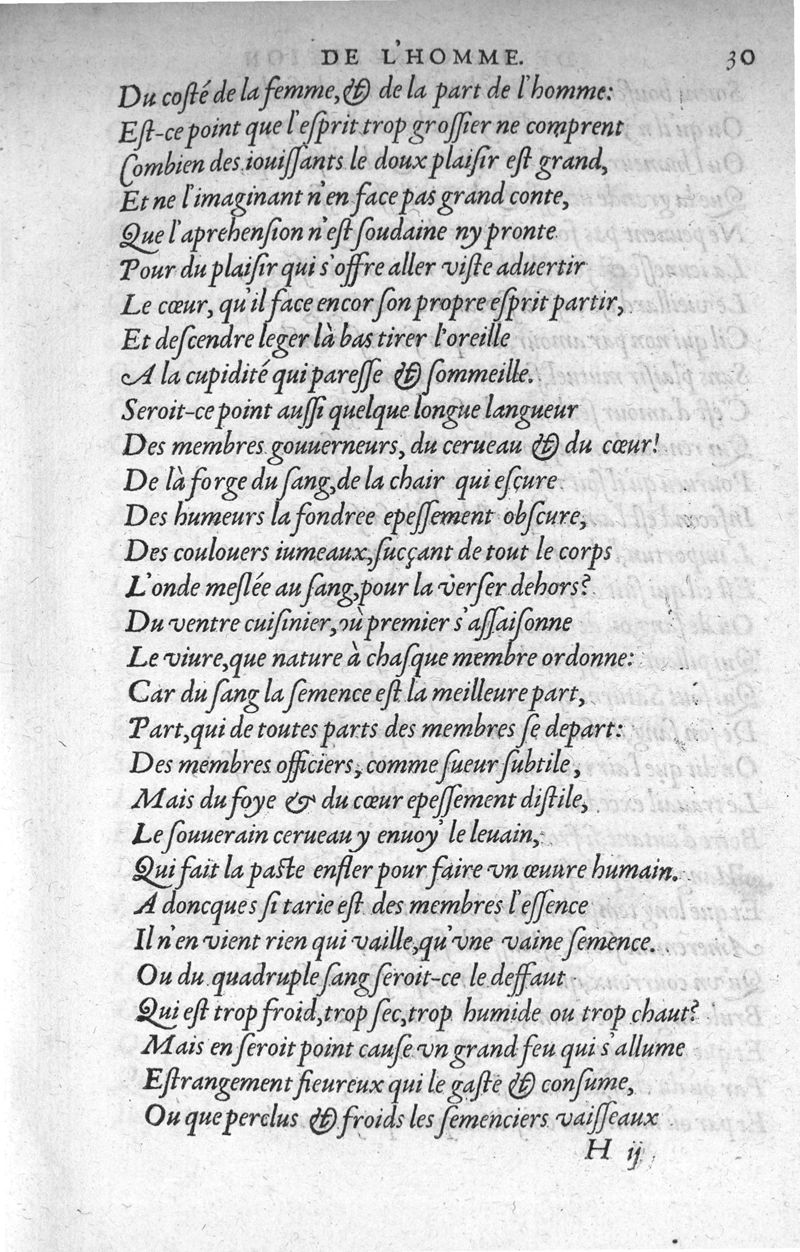 DE L'HOMME. 30
Du coſté de la femme, & de la part de l'homme:
Eſt-ce point que l'eſprit trop groſſier ne comprent
Combien des iouiſſants le doux plaiſir eſt grand,
Et ne l'imaginant n'en face pas grand conte,
Que l'aprehenſion n'eſt ſoudaine ny pronte
Pour du plaiſir qui s'offre aller viſte aduertir
Le cœur, qu'il face encor ſon propre eſprit partir,
Et deſcendre leger là bas tirer l'oreille
A la cupidité qui pareſſe & ſommeille.
Seroit-ce point auſſi quelque longue langueur
Des membres gouuerneurs, du cerueau & du cœur!
De là forge du ſang, de la chair qui eſcure
Des humeurs la fondree epeſſement obſcure,
Des coulouers iumeaux, ſucçant de tout le corps
L'onde meſlée au ſang, pour la verſer dehors?
Du ventre cuiſinier, où premier s'aſſaiſonne
Le viure, que nature à chaſque membre ordonne:
Car du ſang la ſemence eſt la meilleure part,
Part, qui de toutes parts des membres ſe depart:
Des membres officiers, comme ſueur ſubtile,
Mais du foye & du cœur epeſſement diſtile,
Le ſouuerain cerueau y enuoy' le leuain,
Qui fait la paſte enfler pour faire vn œuure humain.
A doncques ſi tarie eſt des membres l'eſſence
Il n'en vient rien qui vaille, qu'vne vaine ſemence.
Ou du quadruple ſang ſeroit-ce le deffaut
Qui eſt trop froid, trop ſec, trop humide ou trop chaut?
Mais en ſeroit point cauſe vn grand feu qui s'allume
Eſtrangement fieureux qui le gaſte & conſume,
Ou que perclus & froids les ſemenciers vaiſſeaux
H ij